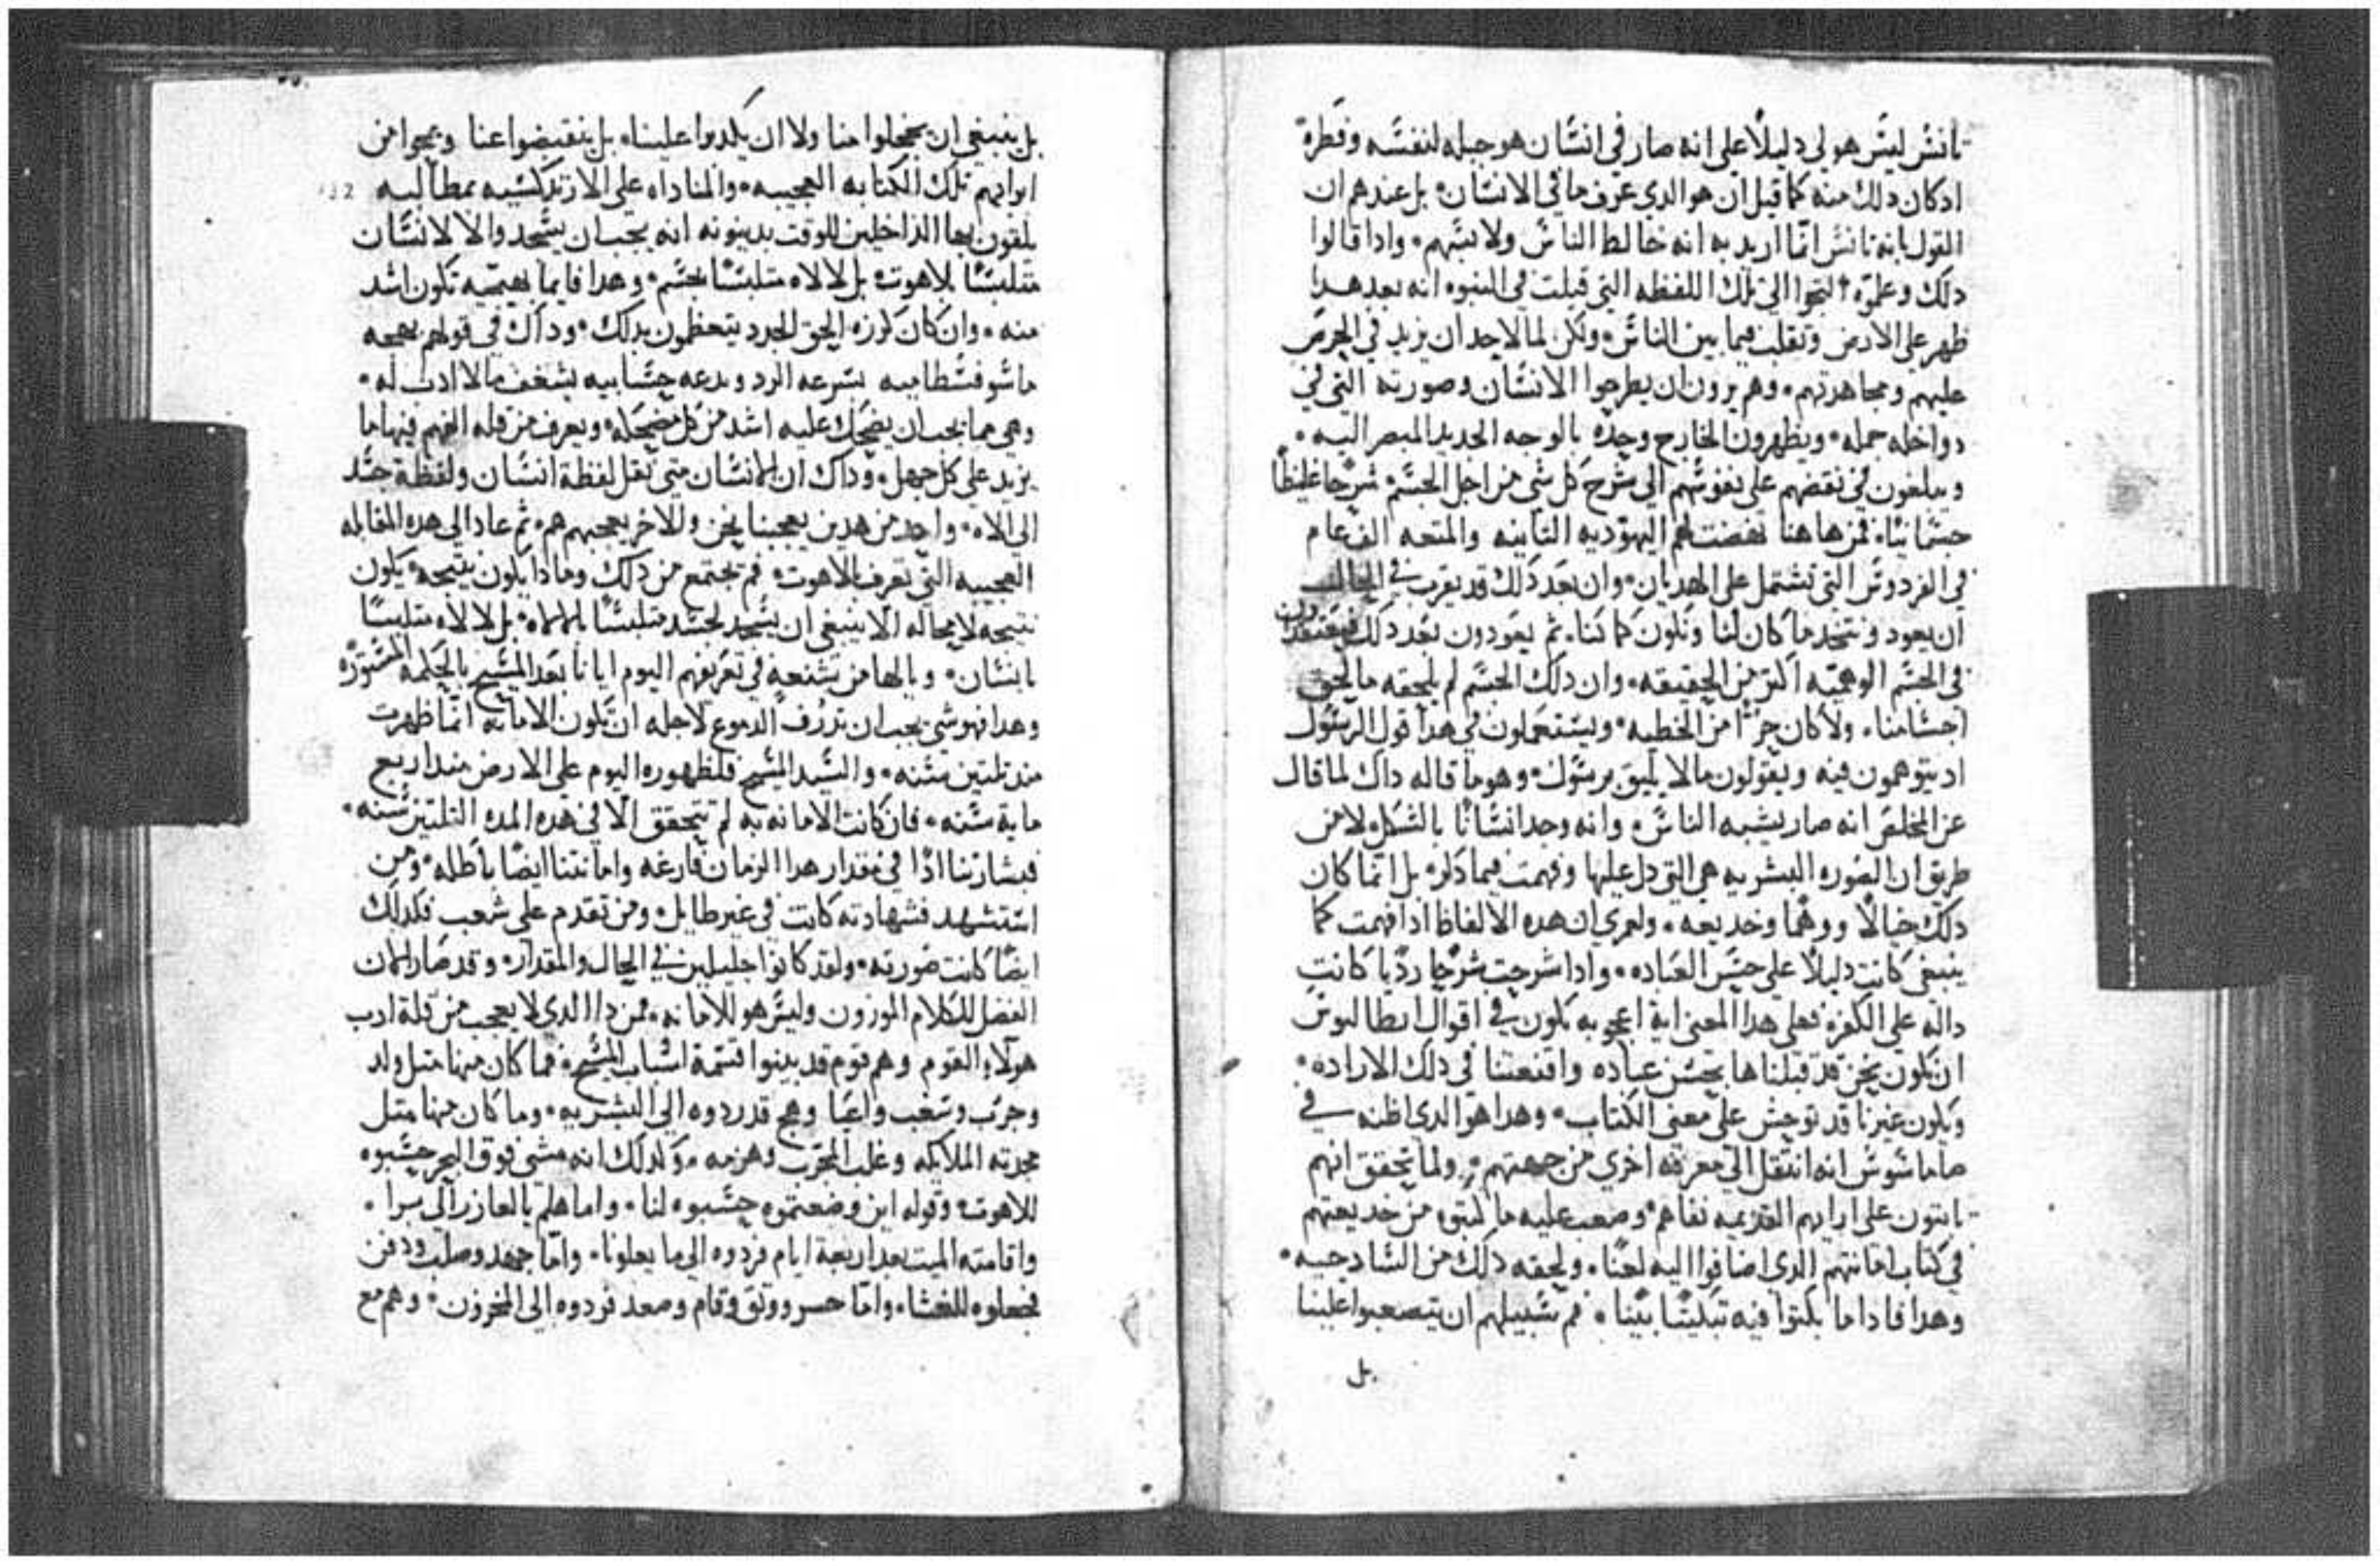 تانس ليس هو لي دليلاً على انه صار في انسان هو جبله لنفسه وفطره
ادكان دلك منه كما قيل ان هو الدي عرف ما في الانسان بل عندهم ان
القول بانه تانس انما اريد به انه خالط الناس ولابسهم وادا قالوا
دلك وعلموه التجوا الى تلك اللفظه التي قيلت في النبوه انه بعد هدا
ظهر على الارض وتقلب فيما بين الناس ولكن لما لا حد ان يزيد في الحرص
عليهم ومجاهدتهم وهم يرون ان يطرحوا الانسان وصورته التي في
دواخله جمله ويظهرون الخارج وحده بالوجه الجديد المبصر اليه
ويبلغون في نقضهم على نفوسهم الى شرح كل شي من اجل الجسم شرحا غليظاً
جسمانيا فمن هاهنا نهضت لهم اليهوديه التانيه والمتعه الف عام
في الفردوس التي تشتمل على الهديان وان بعد دلك قد يقرب في الحال
ان يعود ونتخد ما كان لنا ونكون كما كنا ثم يعودون بعد دلك فيعتقدون
في الجسم الوهميه اكتر من الحقيقه وان دلك الجسم لم يلحقه ما لحق
اجسامنا ولا كان جزا من الخطيه ويستعملون في هدا قول الرسول
اد يتوهمون فيه ويقولون ما لا يليق برسول وهو ما قاله داك لما قال
عن المخلص انه صار يشبه الناس وانه وجد انسانا بالشكل لا من
طريق ان الصوره البشريه هي التي دل عليها وفهمت فيما دكر بل انما كان
دلك خيالاً ووهما وخديعه ولعمري ان هده الالفاظ ادا فهمت كما
ينبغي كانت دليلا على حسن العباده وادا شرحت شرحا رديا كانت
داله على الكفر فعلى هدا المعنى اية اعجوبه تكون في اقوال ابطاليوس
ان نكون نحن قد قبلناها بحسن عباده واقنعتنا في دلك الاراده
ويكون غيرنا قد توحش على معنى الكتاب وهدا هو الدي اظنه في
داماسوس انه انتقل الى معرفه اخري من جهتهم ولما تحقق انهم
تابتون على ارايهم القديمه نفاهم وصعب عليه ما كتبوه من خديعتهم
في كتاب امانتهم الدي اضافوا اليه لعنا ولحقه دلك من السادجيه
وهدا فاداما بكتوا فيه تبكيتا بينا فم سبيلهم ان يتصعبوا علينا
بل
بل ينبغي ان يخجلوا منا ولا ان يكدبوا علينا بل ينقبضوا عنا ويمحوا من
ابوابهم تلك الكتابه العجيبه والمناداه على الارتدكسيه بمطالبه
يلقون بها الداخلين للوقت بدينونه انه يجب ان يسجد والا لا لانسان
متلبسا بلاهوت بل لالاه متلبسا بجسم وهدا فايما بهيميه تكون اشد
منه وان كان كوزه الحق الجدد يتعظمون بدلك وداك في قولهم بهجمه
ما سوفسطاميه بسرعه الرد وبدعه حسابيه يشغف ما لا ادب له
وهي مما يجب ان يضحك عليه اشد من كل مضحكه ويعرف من قله الفهم فيها ما
يزيد على كل جهل وداك ان الانسان متى نقل لفظة انسان ولفظة جسد
الى الاه واحد من هدين يعجبنا نحن والاخر يعجبهم هم ثم عاد الى هده المقابله
العجيبه التي تعرف بالاهوت فم يجتمع من دلك وما دا يكون نتيجه يكون
نتيجه لا محاله الا ينبغي ان يسجد لجسد متلبسا بالاه بل لالاه متلبسا
بانسان ويا لها من شنعه في تعريفهم اليوم ايانا بعد المسيح بالحكمه المستوره
وهدا فهو شي يجب ان تدرف الدموع لاجله ان تكون الامانه انما ظهرت
مند تلتين سنه والسيد المسيح فلظهوره اليوم على الارض مند اربع
مايه سنه فان كانت الامانه به لم تتحقق الا في هده المده التلتين سنه
فبشارتنا ادا في مقدار هدا الزمان فارغه وامانتنا ايضا باطله ومن
استشهد فشهادته كانت في غير طايل ومن تقدم على شعب فكدلك
ايضا كانت صورته ولقد كانوا جليلين في الحال والمقدار وقد صار الان
الفضل للكلام الموزون وليس هو للامانه فمن دا الدي لا يعجب من قلة ادب
هولاء القوم وهم قوم قد بينوا قسمة اسباب المسيح فما كان منها متل ولد
وجرب وسغب واعيا وهجع قد ردوه الى البشريه وما كان منها متل
مجدته الملايكه وغلب المجرب وهزمه وكدلك انه مشى فوق البحر حسبوه
للاهوت وقوله اين وضعتموه حسبوه لنا واما هلم يا لعازر الى برا
واقامته الميت بعد اربعة ايام فردوه الى ما يعلونا واما جهد وصلب ودفن
فجعلوه للغشا واما حسر ووتق وقام وصعد فردوه الى المخزون وهم مع